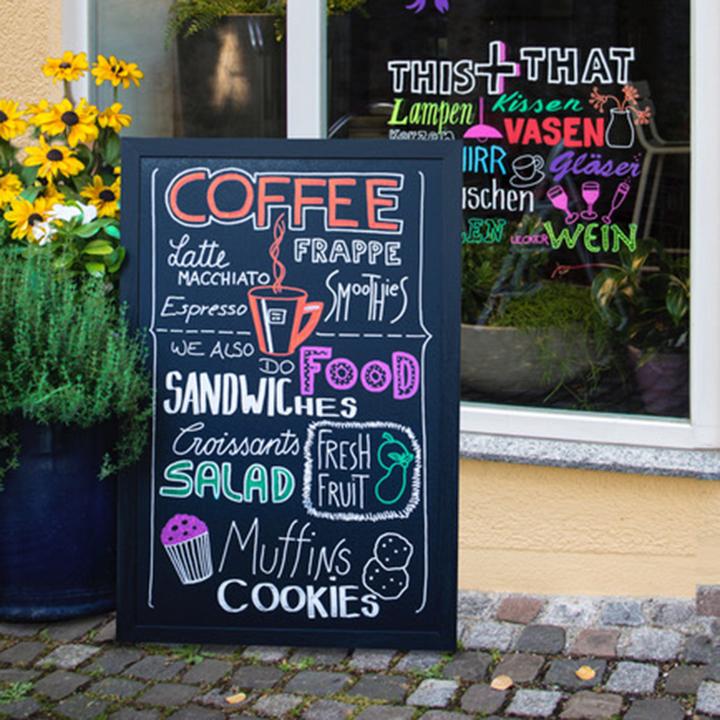 COFFEE
Latte MACCHIATO
FRAPPE
Espresso
SMOOTHIES
WE ALSO DO FOOD
SANDWICHES
Croissants
SALAD
FRESH FRUIT
Muffins
COOKIES
THIS + THAT
Lampen Kissen
Kerzen VASEN
IRR Gläser
schen
EN LECKER WEIN